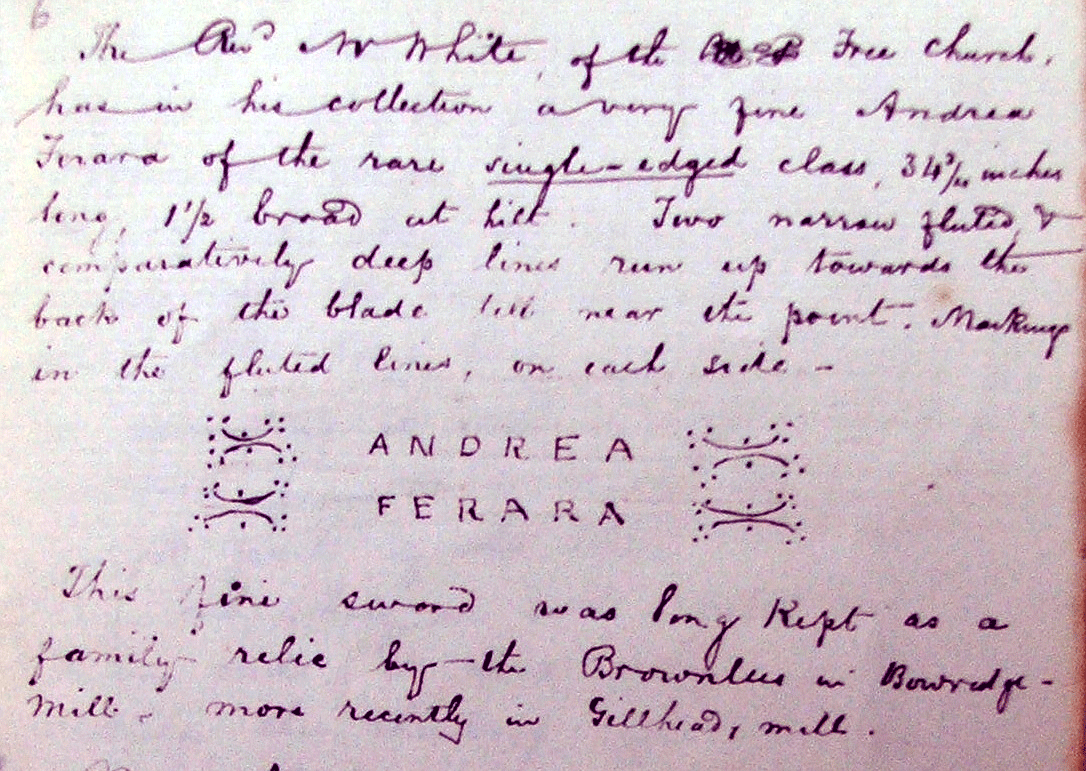 6
The Revd Mr White, of the Free Church,
has in his collection a very fine Andrea
Ferara of the rare single-edged class, 34 3/10 inches
long, 1 1/2 broad at hilt. Two narrow fluted, &
comparatively deep lines run up towards the
back of the blade till near the point. Markings
in the fluted lines, on each side -
ANDREA
FERARA
This fine sword was long kept as a
family relic by the Brownlees in Bowridge-
mill - more recently in Gillhead, mill.